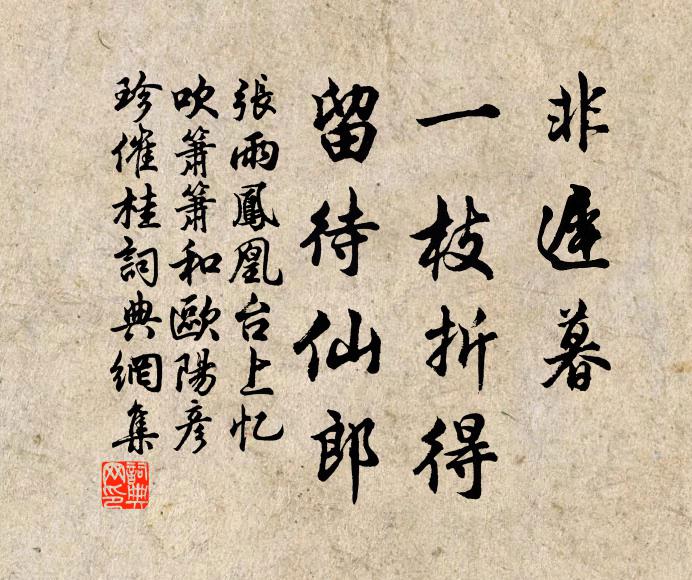 非遲暮
一枝折得
留待仙郎
張雨鳳凰台上忆
吹簫簫和歐陽彥
珍催桂詞典網集
詞典网印